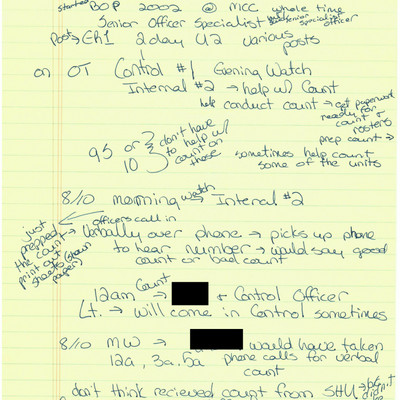 started BOP 2002 @ MCC whole time
Senior Officer Specialist senior specialist officer
Post → GR1 2 day U2 various posts
on OT Control #1 Evening Watch
Internal #2 → help w/ Count
help conduct count → get paperwork ready for count & rosters
prep count →
9S or 10 } don't have to help w/ count on those
sometimes help count some of the units
8/10 morning watch → Internal #2
officers call in
just prepped the count print out sheets (down paper)
Verbally over phone → picks up phone
to hear number → would say good
count or bad count
12am Count → + Control Officer
Lt. → will come in Control sometimes
8/10 MW → would have taken
12a, 3a, 5a phone calls for verbal
count
don't think recieved count from SHU →